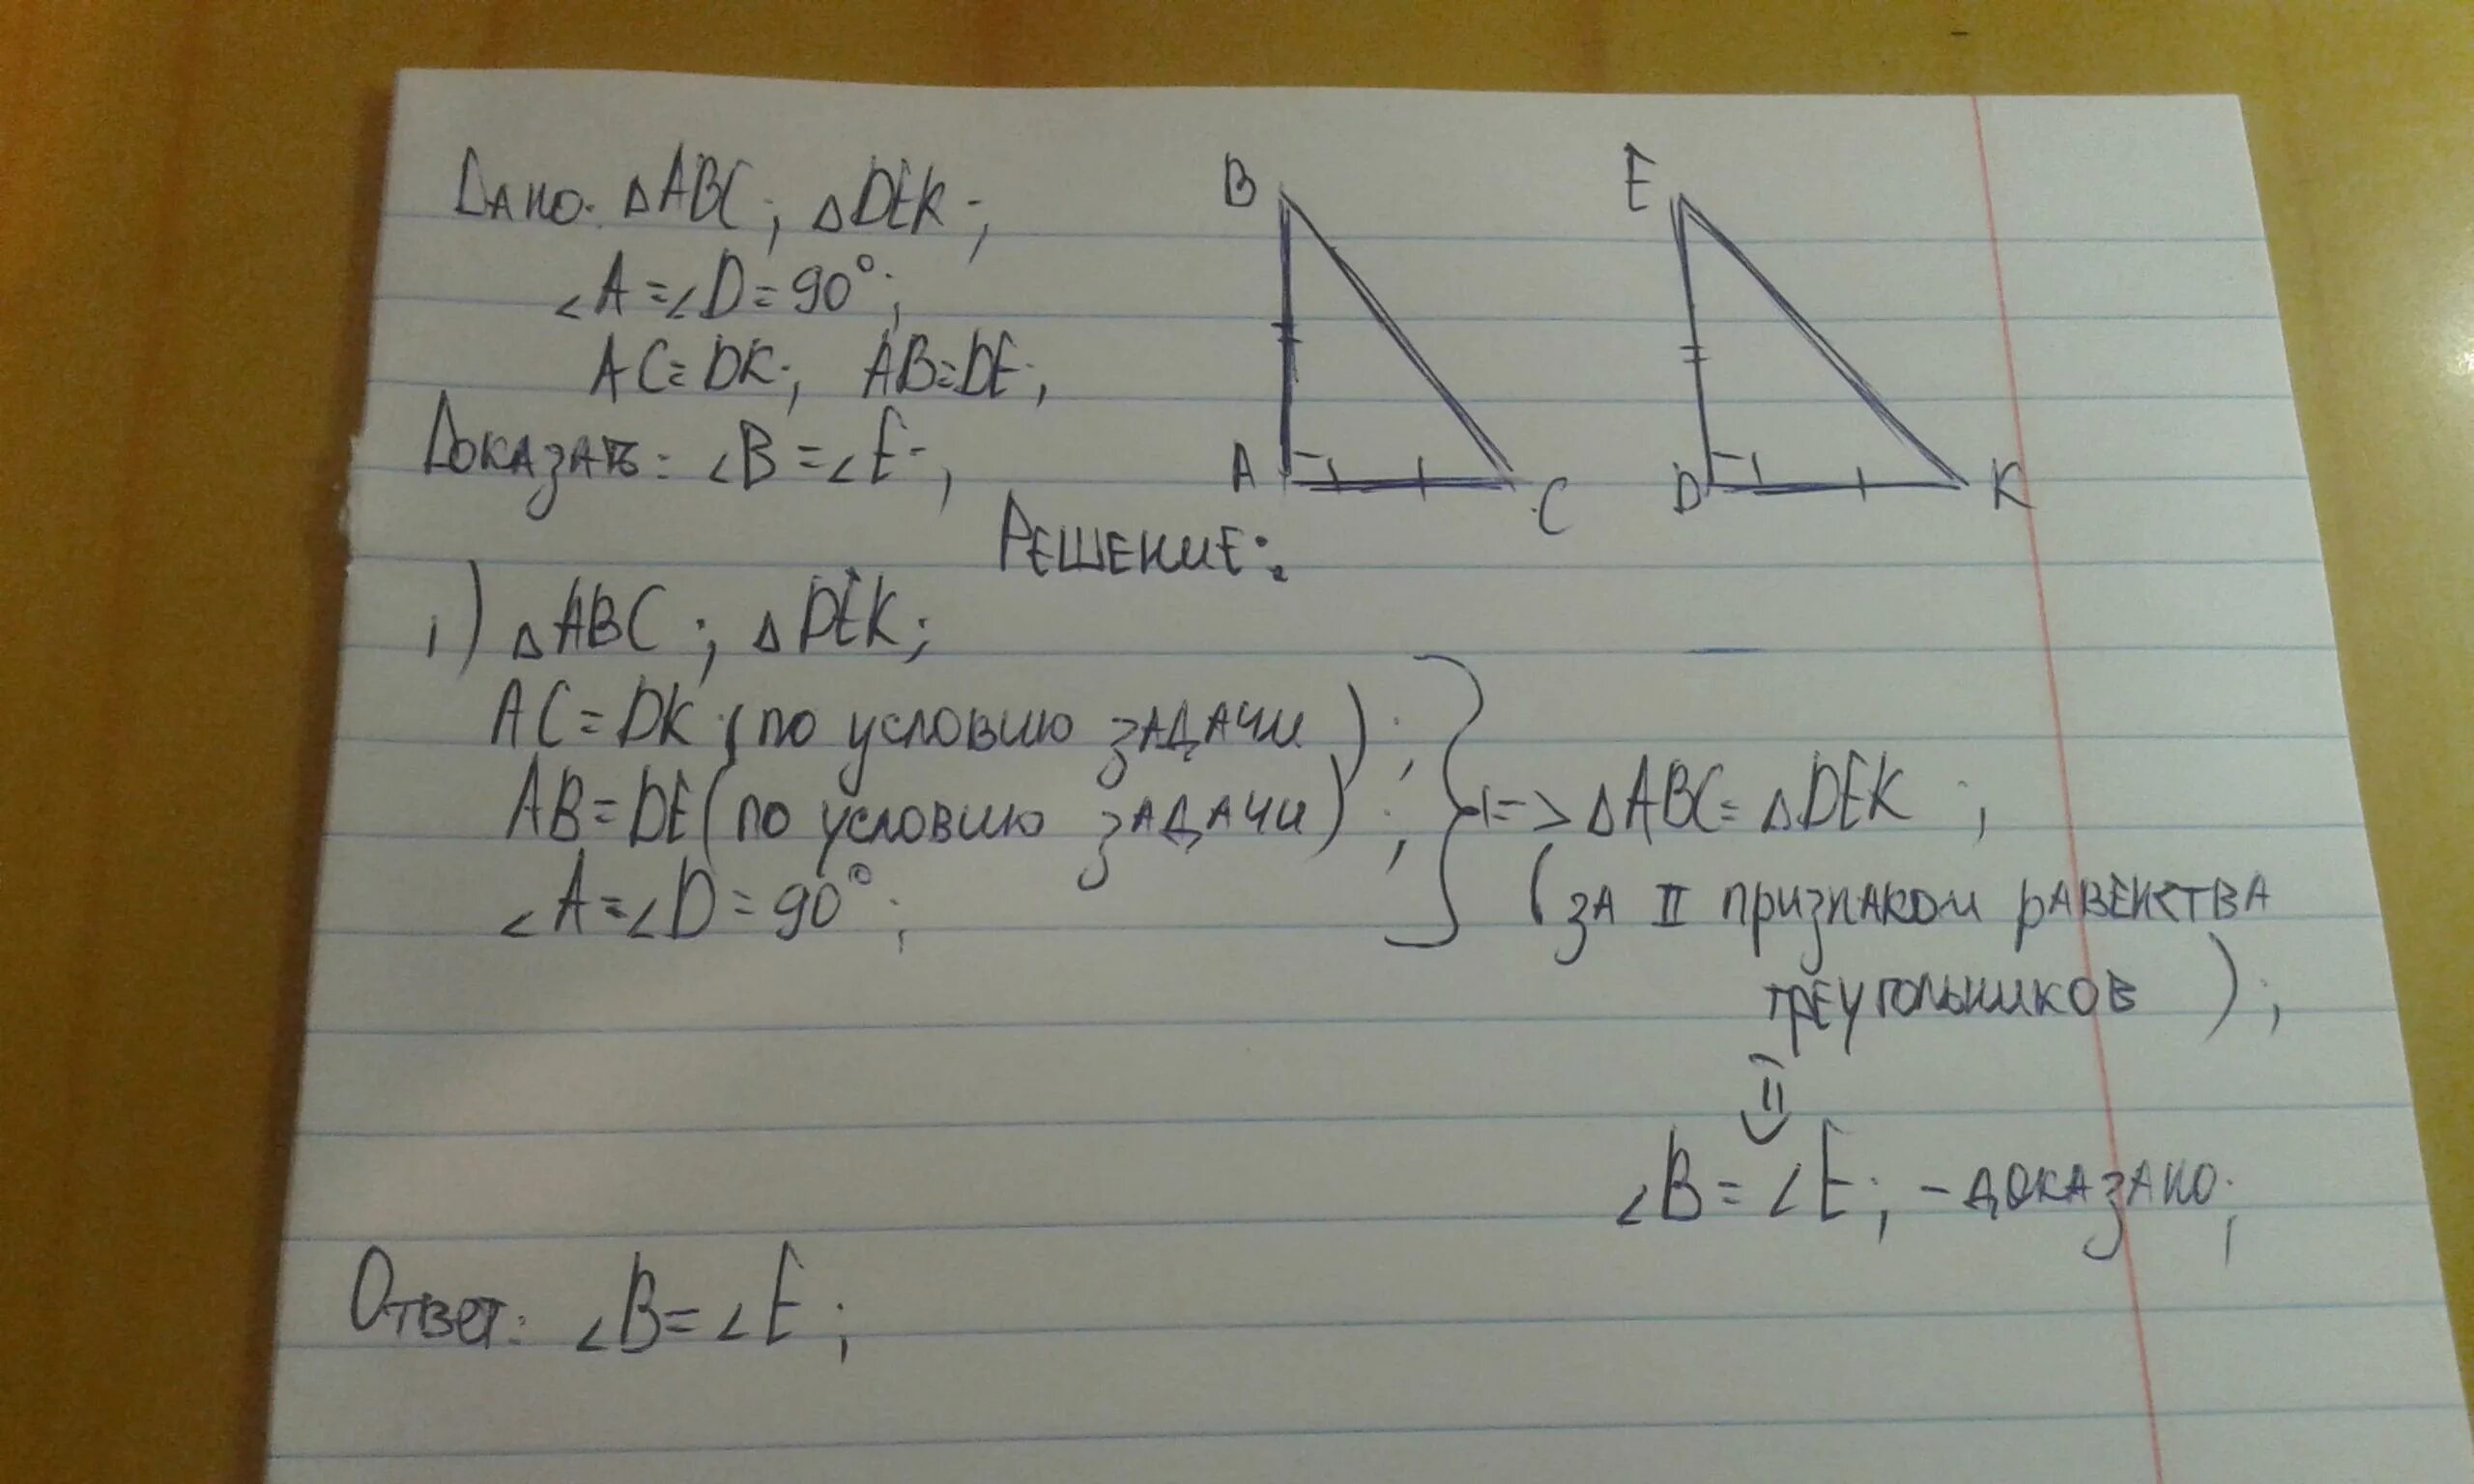 Дано: ΔABC; ΔDEK;
∠A=∠D=90°;
AC=DK; AB=DE;
Доказать: ∠B=∠E;
B
A
C
E
D
K
Решение:
1) ΔABC; ΔDEK;
AC=DK (по условию задачи);
AB=DE (по условию задачи);
∠A=∠D=90°;
=> ΔABC=ΔDEK;
(за II признаком равенства
треугольников);
∠B=∠E; -доказано;
Ответ: ∠B=∠E;